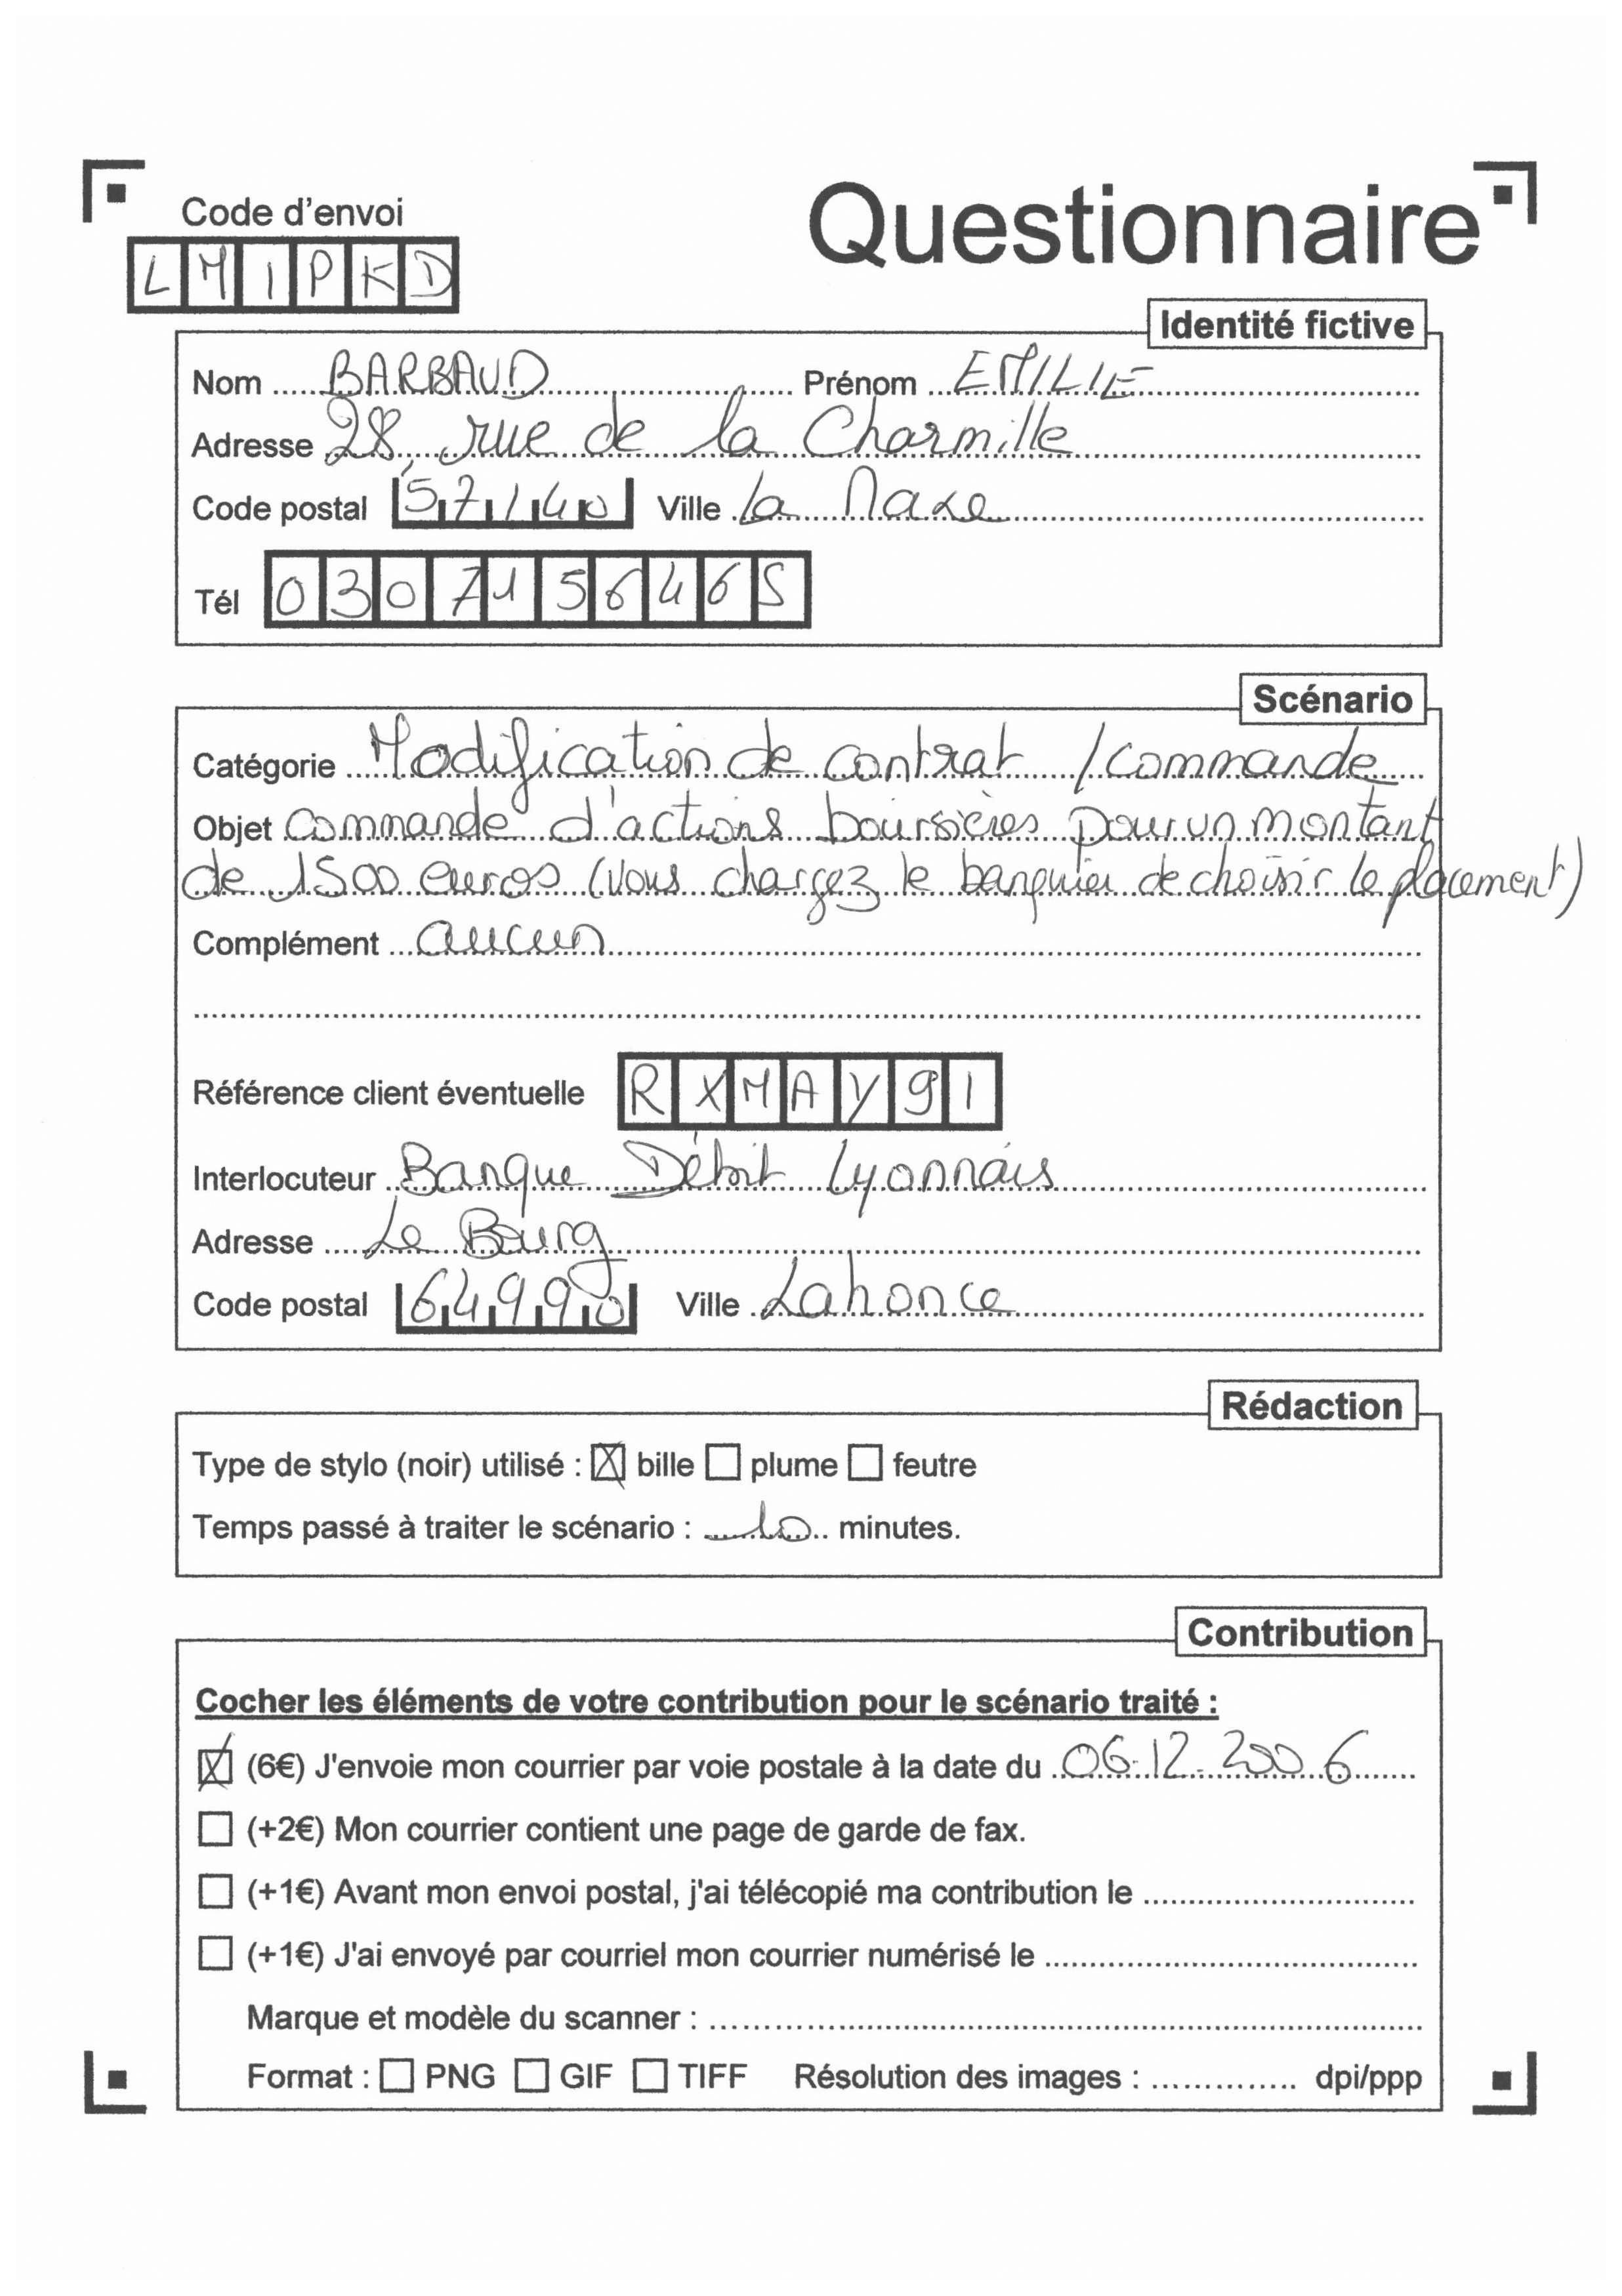 Code d'envoi
Questionnaire
LMIPKD
Identité fictive
Nom BARBAUD Prénom EMILIE
Adresse 28, rue de la Charmille
Code postal 57140 Ville la Maxe
Tél 0307156465
Scénario
Catégorie Modification de contrat / commande
Objet Commande d'actions boursières pour un montant
de 1500 euros (vous chargez le banquier de choisir le placement)
Complément aucun
Référence client éventuelle RXMAY91
Interlocuteur Banque Débit Lyonnais
Adresse Le Bourg
Code postal 64990 Ville Lahonce
Rédaction
Type de stylo (noir) utilisé : ☒ bille ☐ plume ☐ feutre
Temps passé à traiter le scénario : 10 minutes.
Contribution
Cocher les éléments de votre contribution pour le scénario traité :
☒ (6€) J'envoie mon courrier par voie postale à la date du 06.12.2006
☐ (+2€) Mon courrier contient une page de garde de fax.
☐ (+1€) Avant mon envoi postal, j'ai télécopié ma contribution le
☐ (+1€) J'ai envoyé par courriel mon courrier numérisé le
Marque et modèle du scanner :
Format : ☐ PNG ☐ GIF ☐ TIFF Résolution des images : dpi/ppp